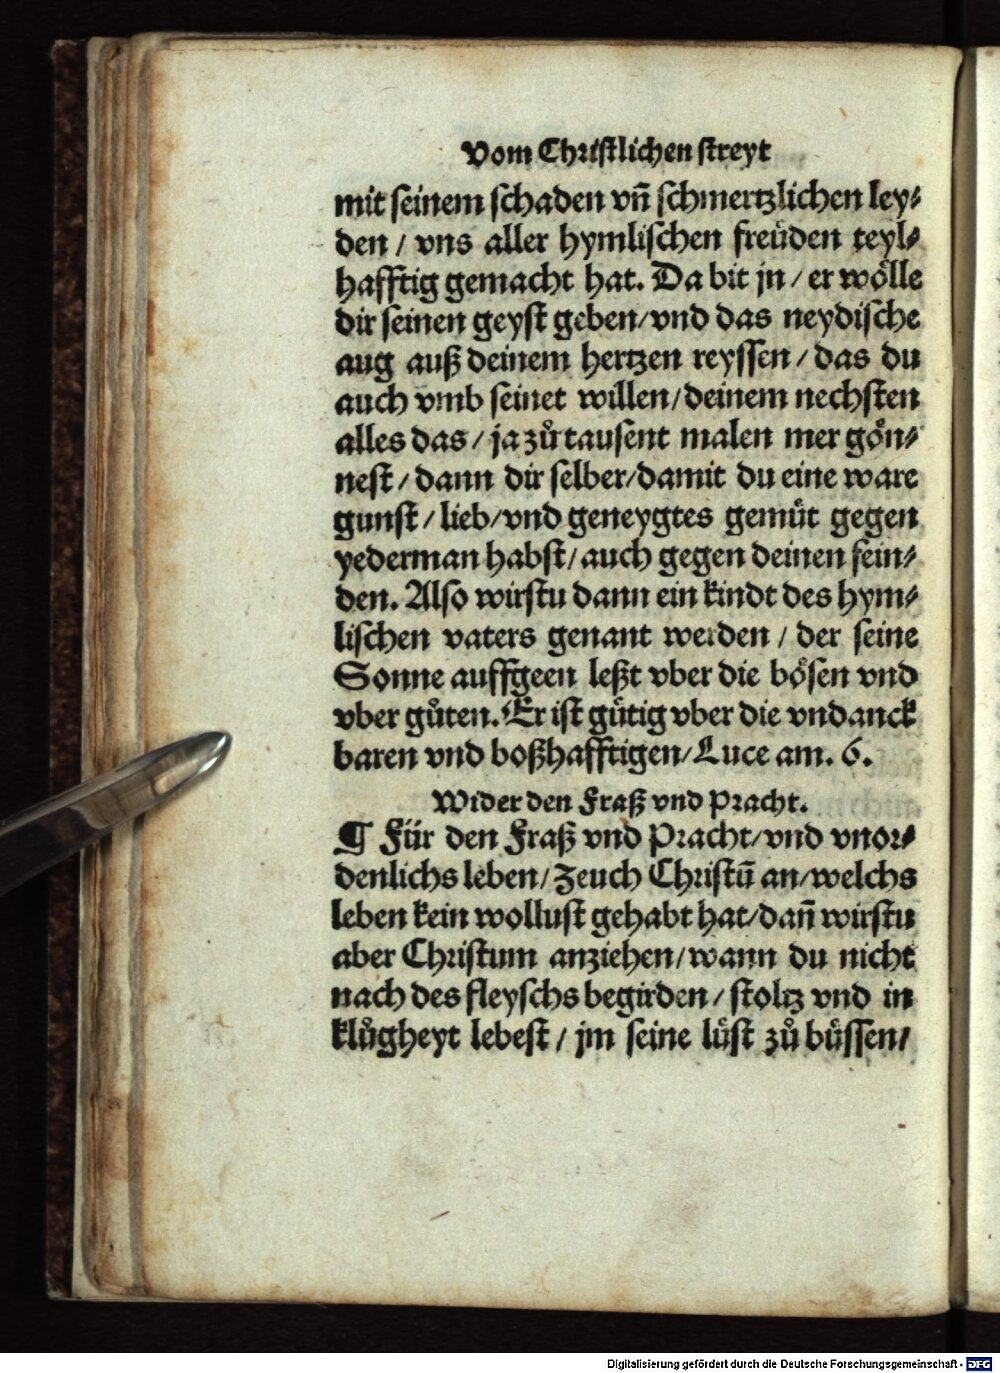 Vom Christlichen streyt
mit seinem schaden vn̄ schmertzlichen ley⸗
den / vns aller hymlischen freüden teyl⸗
hafftig gemacht hat. Da bit jn / er wölle
dir seinen geyst geben/vnd das neydische
aug auß deinem hertzen reyssen / das du
auch vmb seinet willen/deinem nechsten
alles das / ja zů tausent malen mer gön⸗
nest / dann dir selber/damit du eine ware
gunst / lieb/vnd geneygtes gemüt gegen
yederman habst/auch gegen deinen fein⸗
den. Also wirstu dann ein kindt des hym⸗
lischen vaters genant werden / der seine
Sonne auffgeen leßt vber die bösen vnd
vber gůten. Er ist gütig vber die vndanck
baren vnd boßhafftigen/Luce am. 6.
Wider den Fraß vnd Pracht.
¶ Für den Fraß vnd Pracht/vnd vnor⸗
denlichs leben/Zeuch Christū an/welchs
leben kein wollust gehabt hat/dan̄ wirstu
aber Christum anziehen/wann du nicht
nach des fleyschs begirden / stoltz vnd in
klůgheyt lebest / jm seine lüst zů büssen/
Digitalisierung gefördert durch die Deutsche Forschungsgemeinschaft - DFG